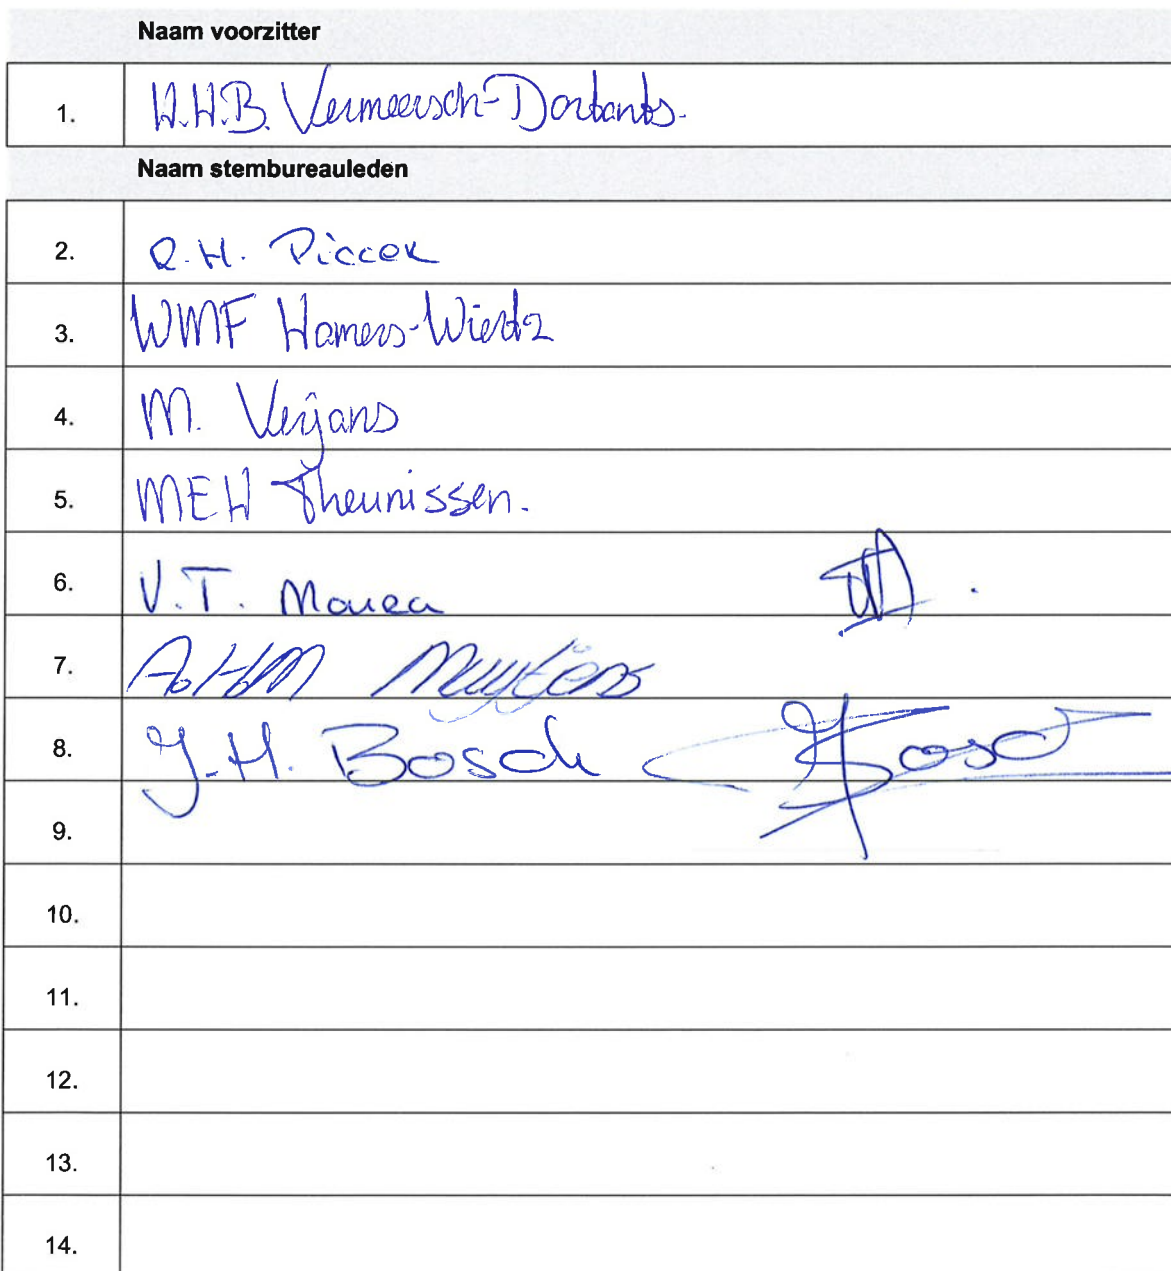 Naam voorzitter
1. H.H.B. Vermeersch-Dortants.
Naam stembureauleden
2. R.H. Piccer
3. WMF Hamers-Wiertz
4. M. Verjans
5. MEH Theunissen.
6. V.T. Mouea
7. A.H.M Muytjens
8. J.H. Bosch Bosch
9.
10.
11.
12.
13.
14.